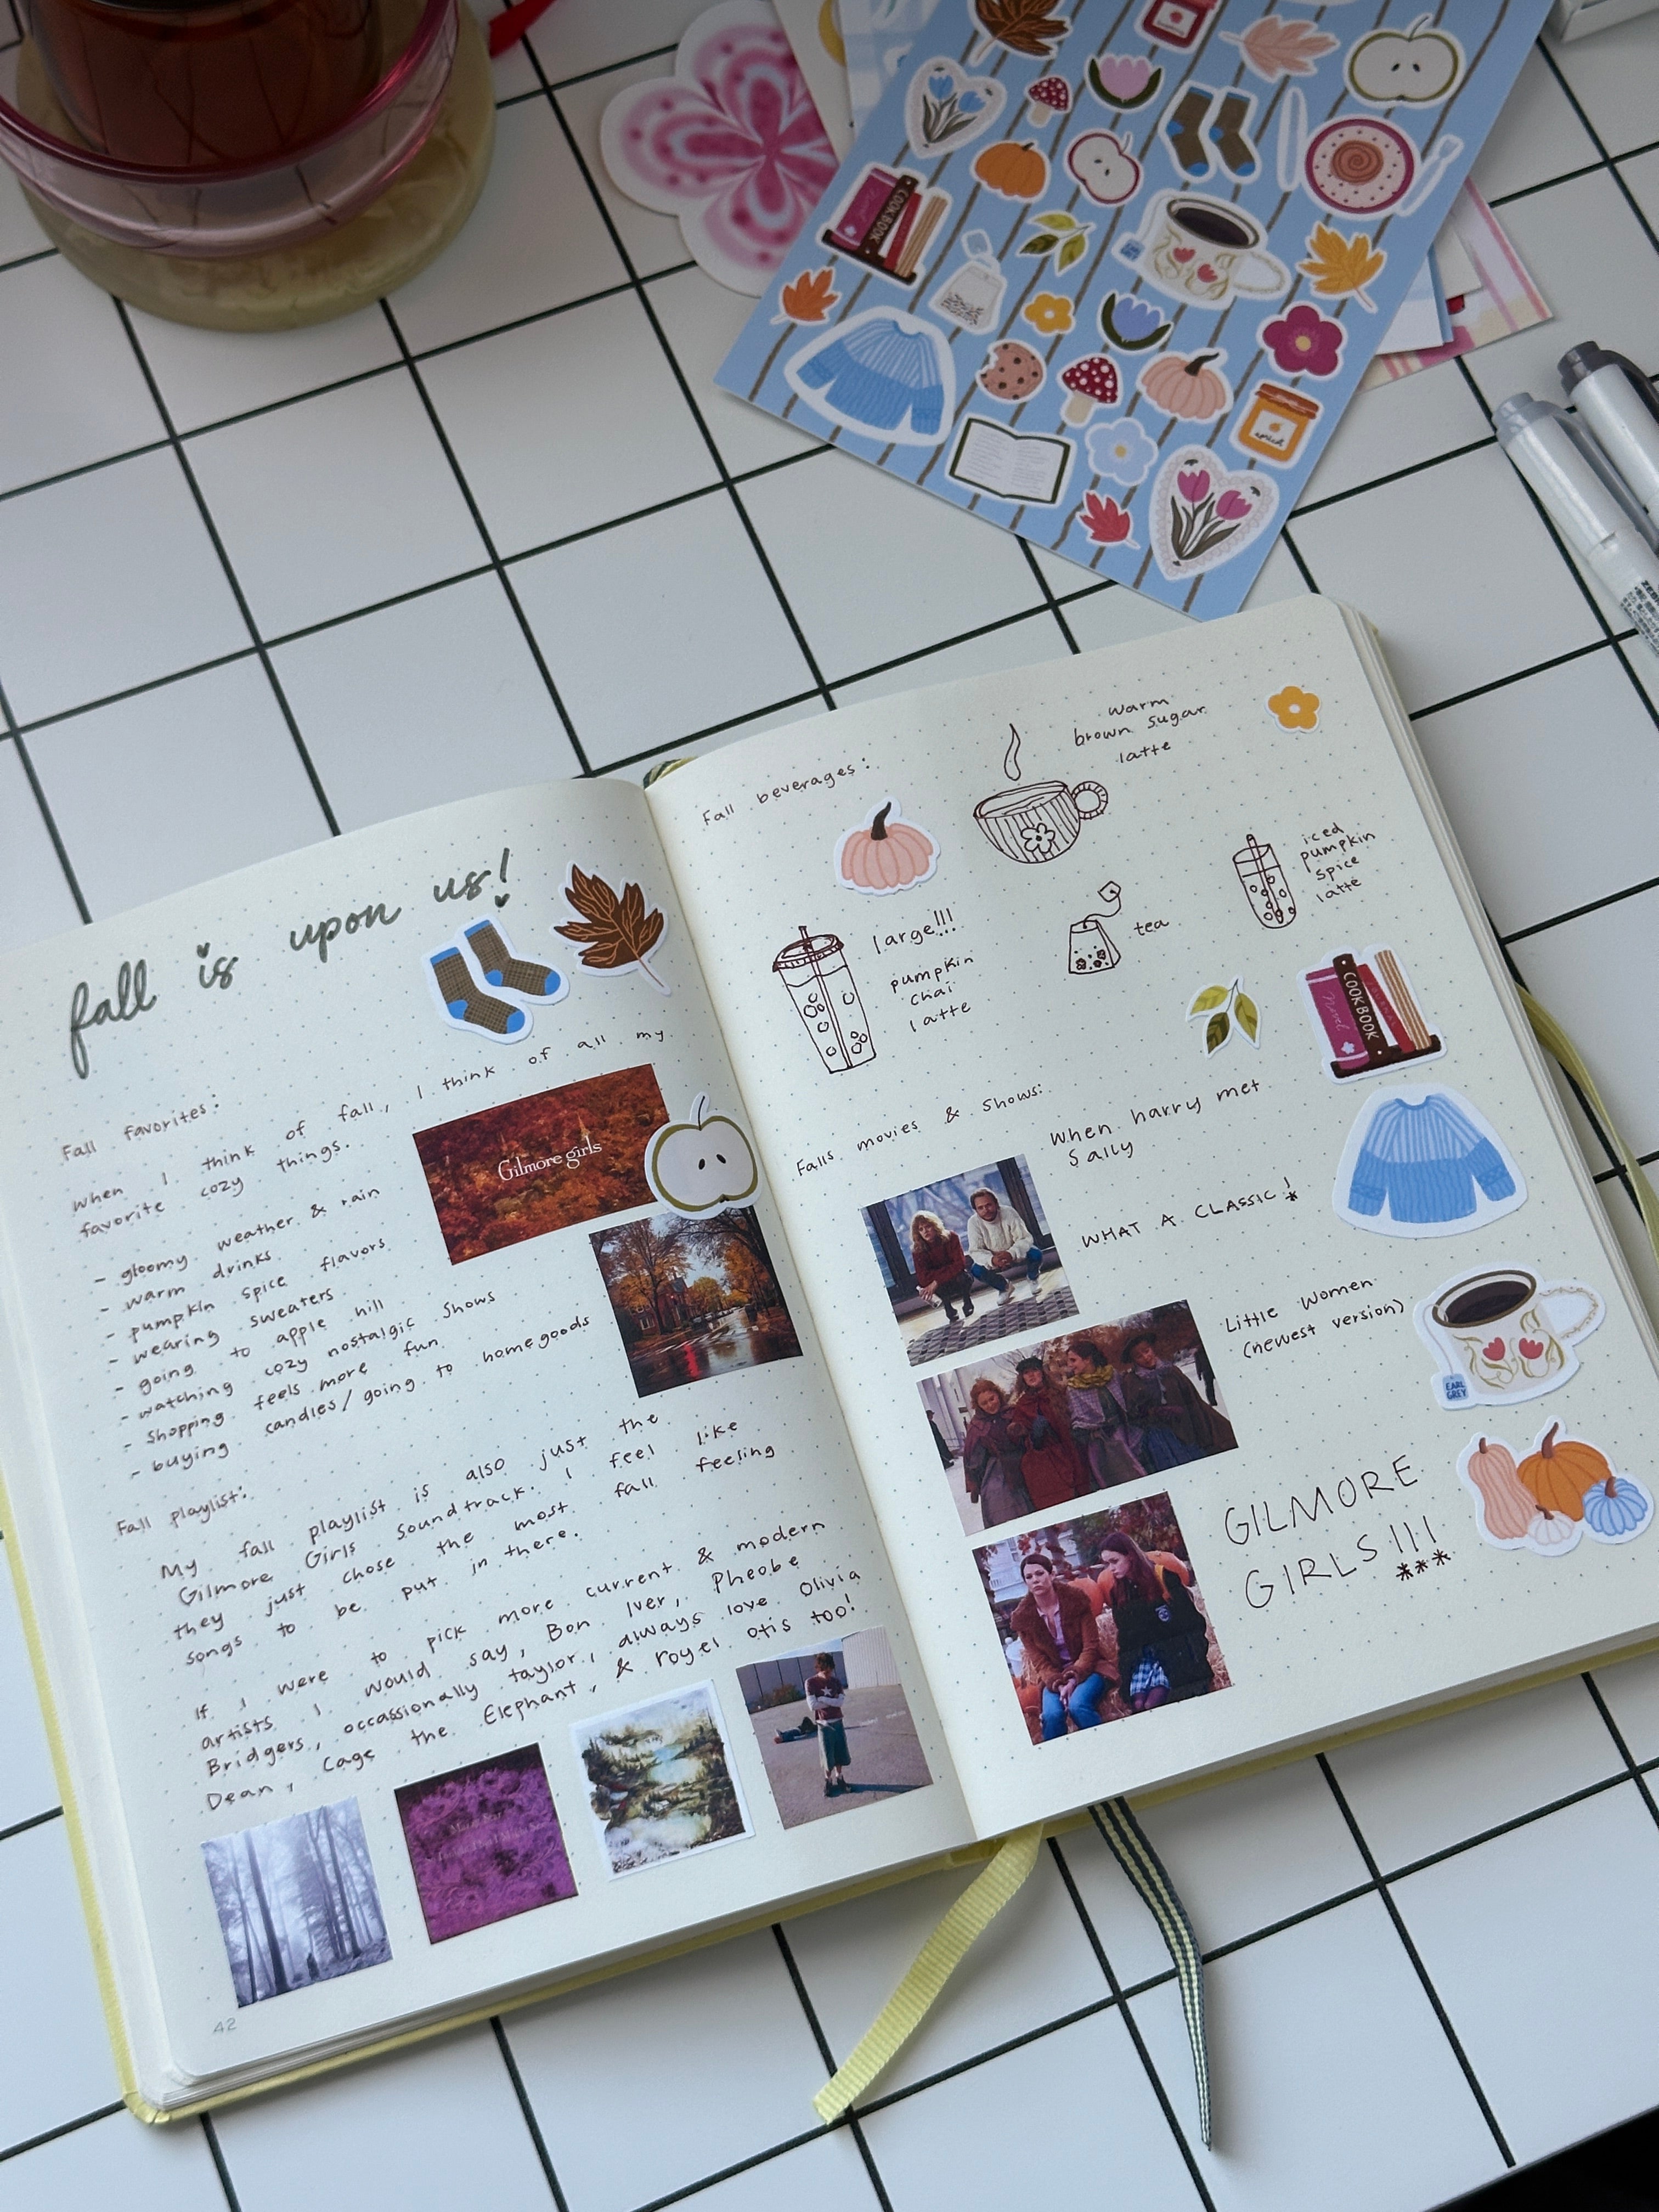 NOVEL
COOKBOOK
fall is upon us!
Fall favorites:
When I think of fall, I think of all my
favorite cozy things.
- gloomy weather & rain
- warm drinks
- pumpkin spice flavors
- wearing sweaters
- going to apple hill
- watching cozy nostalgic shows
- shopping feels more fun
- buying candles/going to homegoods
Gilmore girls
Fall playlist:
My fall playlist is also just the
Gilmore Girls soundtrack. I feel like
they just chose the most fall feeling
songs to be put in there.
If I were to pick more current & modern
artists I would say, Bon Iver, Pheobe
Bridgers, occassionally taylor, always love Olivia
Dean, Cage the Elephant, & royel otis too!
42
Fall beverages:
warm
brown sugar
latte
large!!!
pumpkin
chai
latte
tea
iced
pumpkin
spice
latte
Novel
COOKBOOK
Falls movies & shows:
When harry met
Sally
WHAT A CLASSIC!
Little Women
(newest version)
EARL
GREY
GILMORE
GIRLS!!!